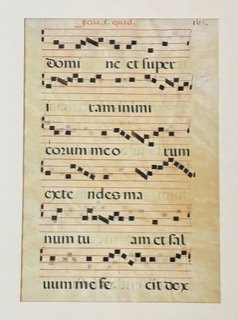 feria .5. quad. 161
domi ne et super
i ram inimi
corum meo rum
exte ndes ma
num tu am et sal
uum me fe cit dex